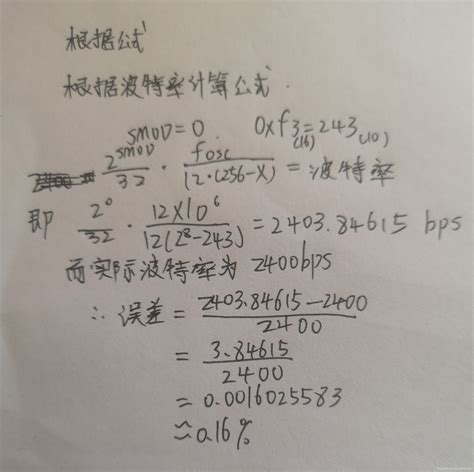 根据公式
根据波特率计算公式.
SMOD=0. 0xf3(16)=243(10)
2^SMOD/32 · fosc/(12·(256-X)) = 波特率
即 2^0/32 · 12×10^6/(12(2^8-243)) = 2403.84615 bps
而实际波特率为 2400bps
∴ 误差 = (2403.84615-2400)/2400
= 3.84615/2400
= 0.0016025583
≈0.16%